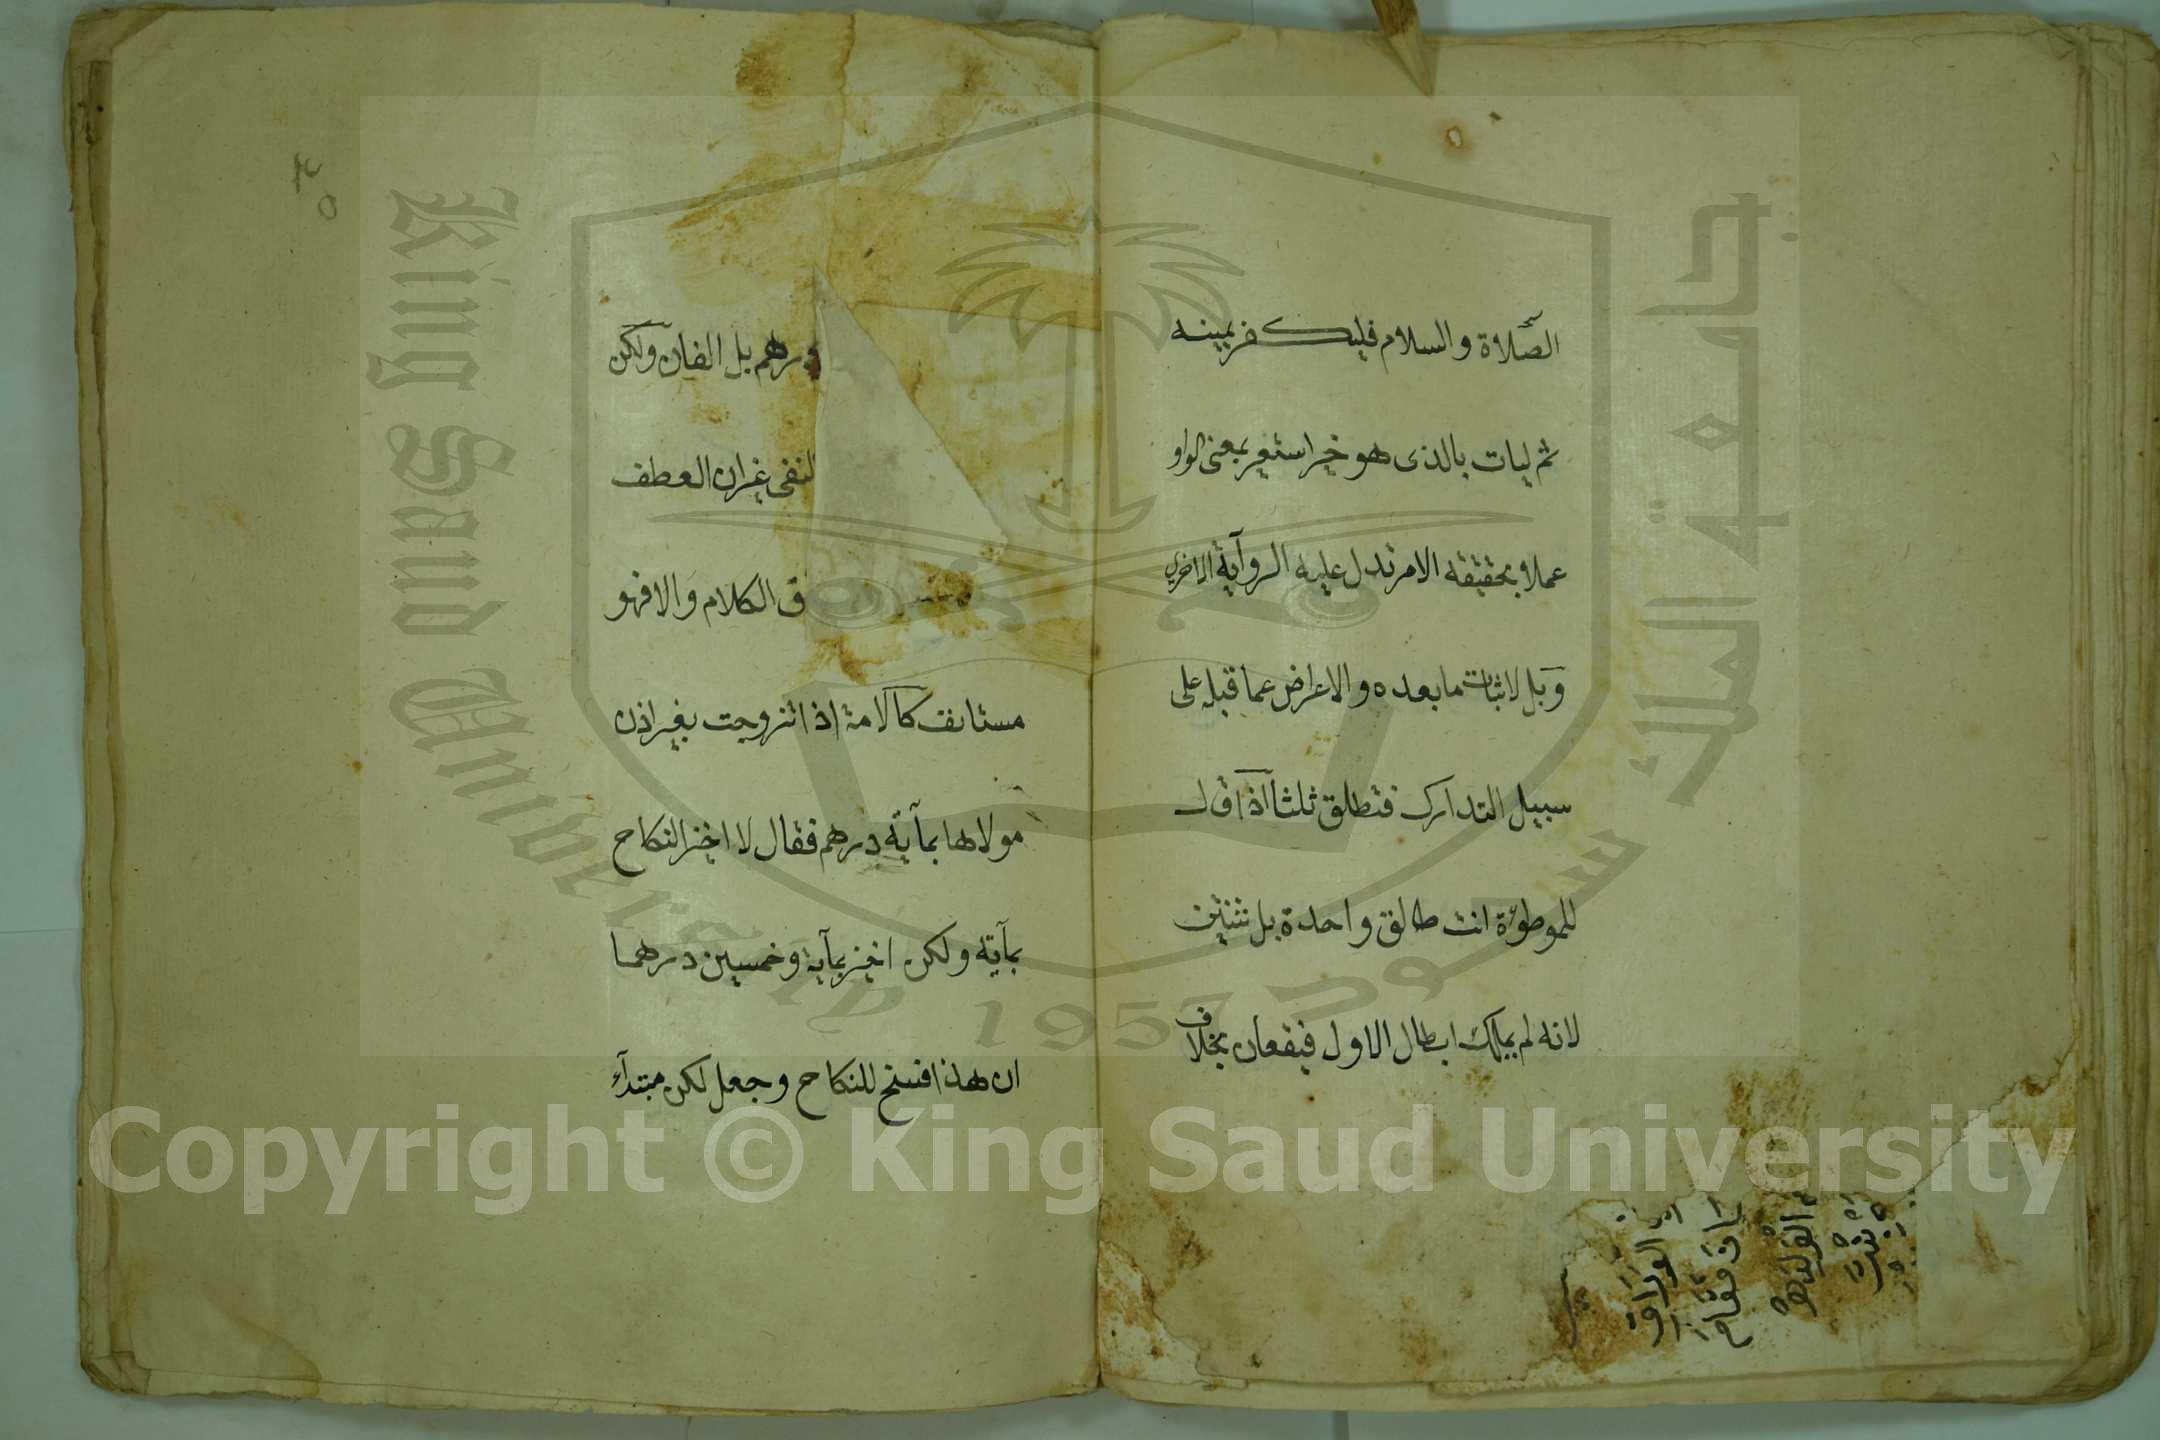 الصلاة والسلام فليكفر يمينه
ثم ليات بالذى هو خير استعير بمعنى الواو
عملا بحقيقة الامر تدل عليه الروآية الاخرى
وبل لاثبات ما بعده والاعراض عما قبله على
سبيل التدارك فتطلق ثلثا اذا قال
للموطوءة انت طالق واحدة بل ثنتين
لانه لم يملك ابطال الاول فيقعان بخلاف
٢٥
درهم بل الفان ولكن
النفى غير ان العطف
ق الكلام والا فهو
مستانف كالامة اذا تزوجت بغير اذن
مولاها بمآية درهم فقال لا اخيز النكاح
بمآية ولكن اخيز بمآية وخمسين درهما
ان هذا فسخ للنكاح وجعل لكن مبتدآء
King Saud University
1957
جامعة الملك سعود
Copyright © King Saud University